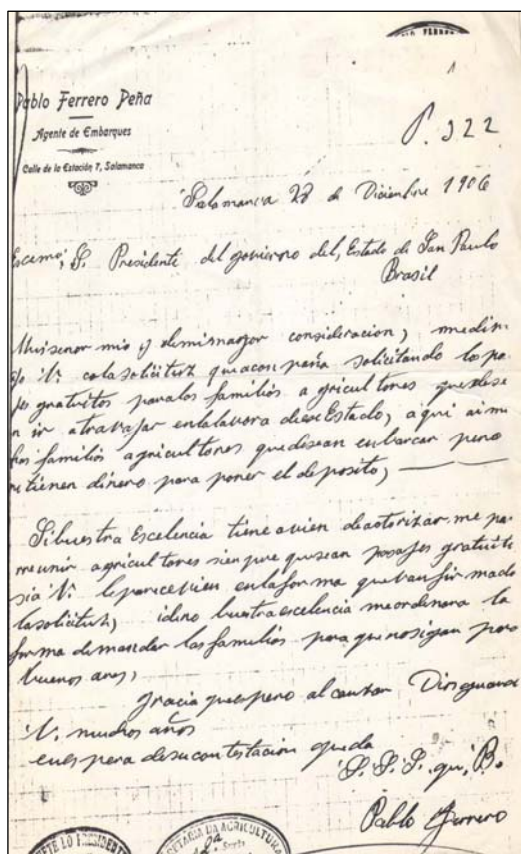 FERRERO
Pablo Ferrero Peña
Agente de Embarques
Calle de la Estación 7, Salamanca
P. 322
Salamanca 28 de Diciembre 1906
Escemo; S. Presidente del govierno del, Estado de San Paulo
Brasil
Mui senor mio y demimayor consideracion,
V. colasolicitut quiacompaña solicitando los pa
jes gratuitos paralos familias agricultores quedese
n ir atravajar enlalavora dieseEstado, aqui ai mu
familias agricultores quedesean enbarcar pero
no tienen dinero para poner el deposito,
Sibuestra Escelencia tiene avien deactorizarme pa
reunir agricultores sienpre quesean pasajes gratuitos
sia V. leparecevien enlaforma quevan firmado
lasolicitut, idino buestra excelencia meordenara la
forma demandar las familias para quenosigan para
buenos aires,
gracia quespero alcanzar Diosguarde
V. muchos años
enespera desucontestacion queda
S. S. S. qu, B.
Pablo Ferrero
SECRETARIA DA AGRICULTURA